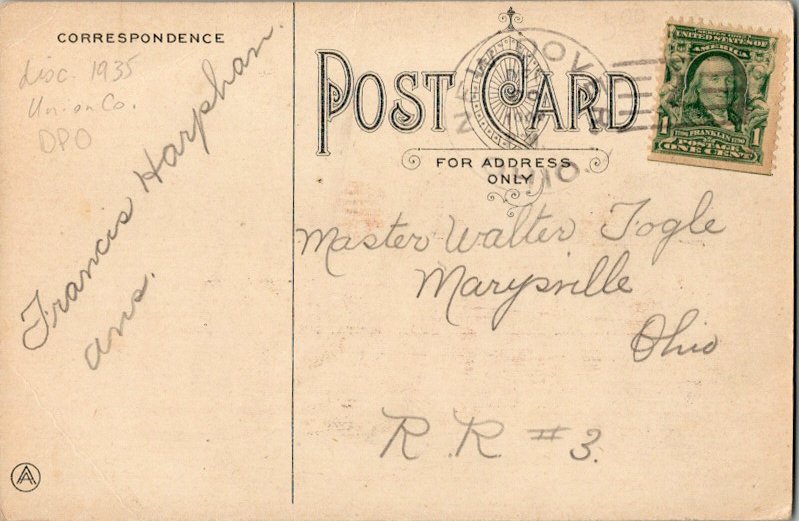 CORRESPONDENCE
disc. 1935
Union Co.
DPO
Francis Harphan.
ans.
POST CARD
FOR ADDRESS
ONLY
NEW DOVER
OHIO
SERIES 1902
UNITED STATES OF
AMERICA
1 FRANKLIN 1
POSTAGE
ONE CENT
Master Walter Fogle
Marysville
Ohio
R.R. #3.
A